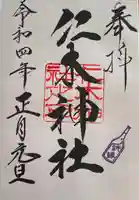 奉拝
仁木神社
令和四年 正月元旦